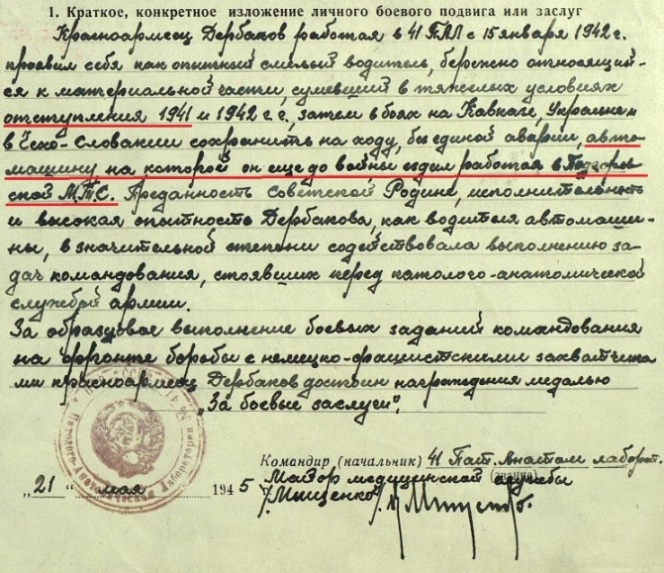 1. Краткое, конкретное изложение личного боевого подвига или заслуг
Красноармеец Дербаков работая в 41 ПАЛ с 15 января 1942 г.
проявил себя как опытный смелый водитель, бережно относящий-
ся к материальной части, сумевший в тяжелых условиях
отступления 1941 и 1942 г.г., затем в боях на Кавказе, Украине и
в Чехо-Словакии сохранить на ходу, без единой аварии, авто-
машину, на которой он еще до войны ездил работая в
ской МТС. Преданность Советской Родине, исполнительность
и высокая опытность Дербакова, как водителя автомаши-
ны, в значительной степени содействовала выполнению за-
дач командования, стоявших перед патолого-анатомической
службой армии.
За образцовое выполнение боевых заданий командования
на фронте борьбы с немецко-фашистскими захватчика
ми красноармеец Дербаков достоин награждения медалью
„За боевые заслуги".
Командир (начальник) 41 Пат. Анатом лаборат.
(звание)
Майор медицинской службы
„21" мая 1945
/Мищенко/